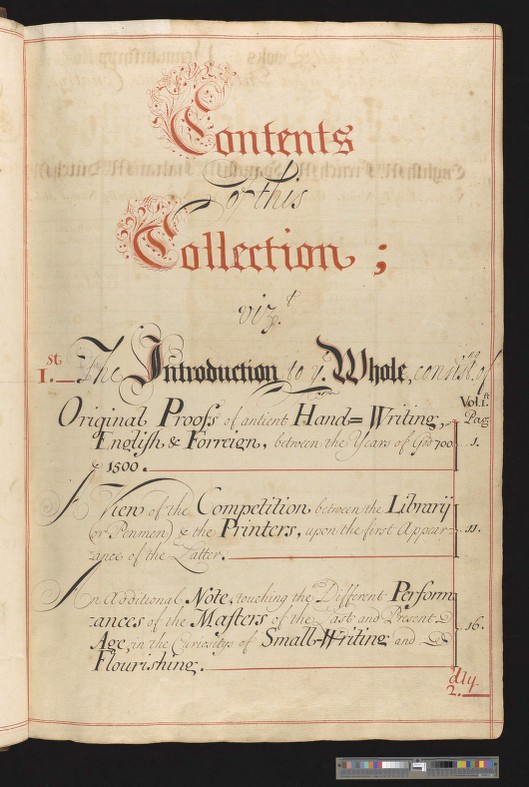 Contents
Of this
Collection ;
viz.t
1.st The Introduction to ye. Whole, consistng. of
Vol. 1st
Original Proofs of antient Hand=Writing, Pag
English & Forreign, between the Years of God 700 1.
& 1500.
A View of the Competition between the Library
(or Penmen) & the Printers, upon the first Appear- 11.
ance of the Latter.
An Additional Note, touching the Different Perform
ances of the Masters of the Past and Present 16.
Age, in the Curiosity of Small-Writing and
Flourishing.
2.dly